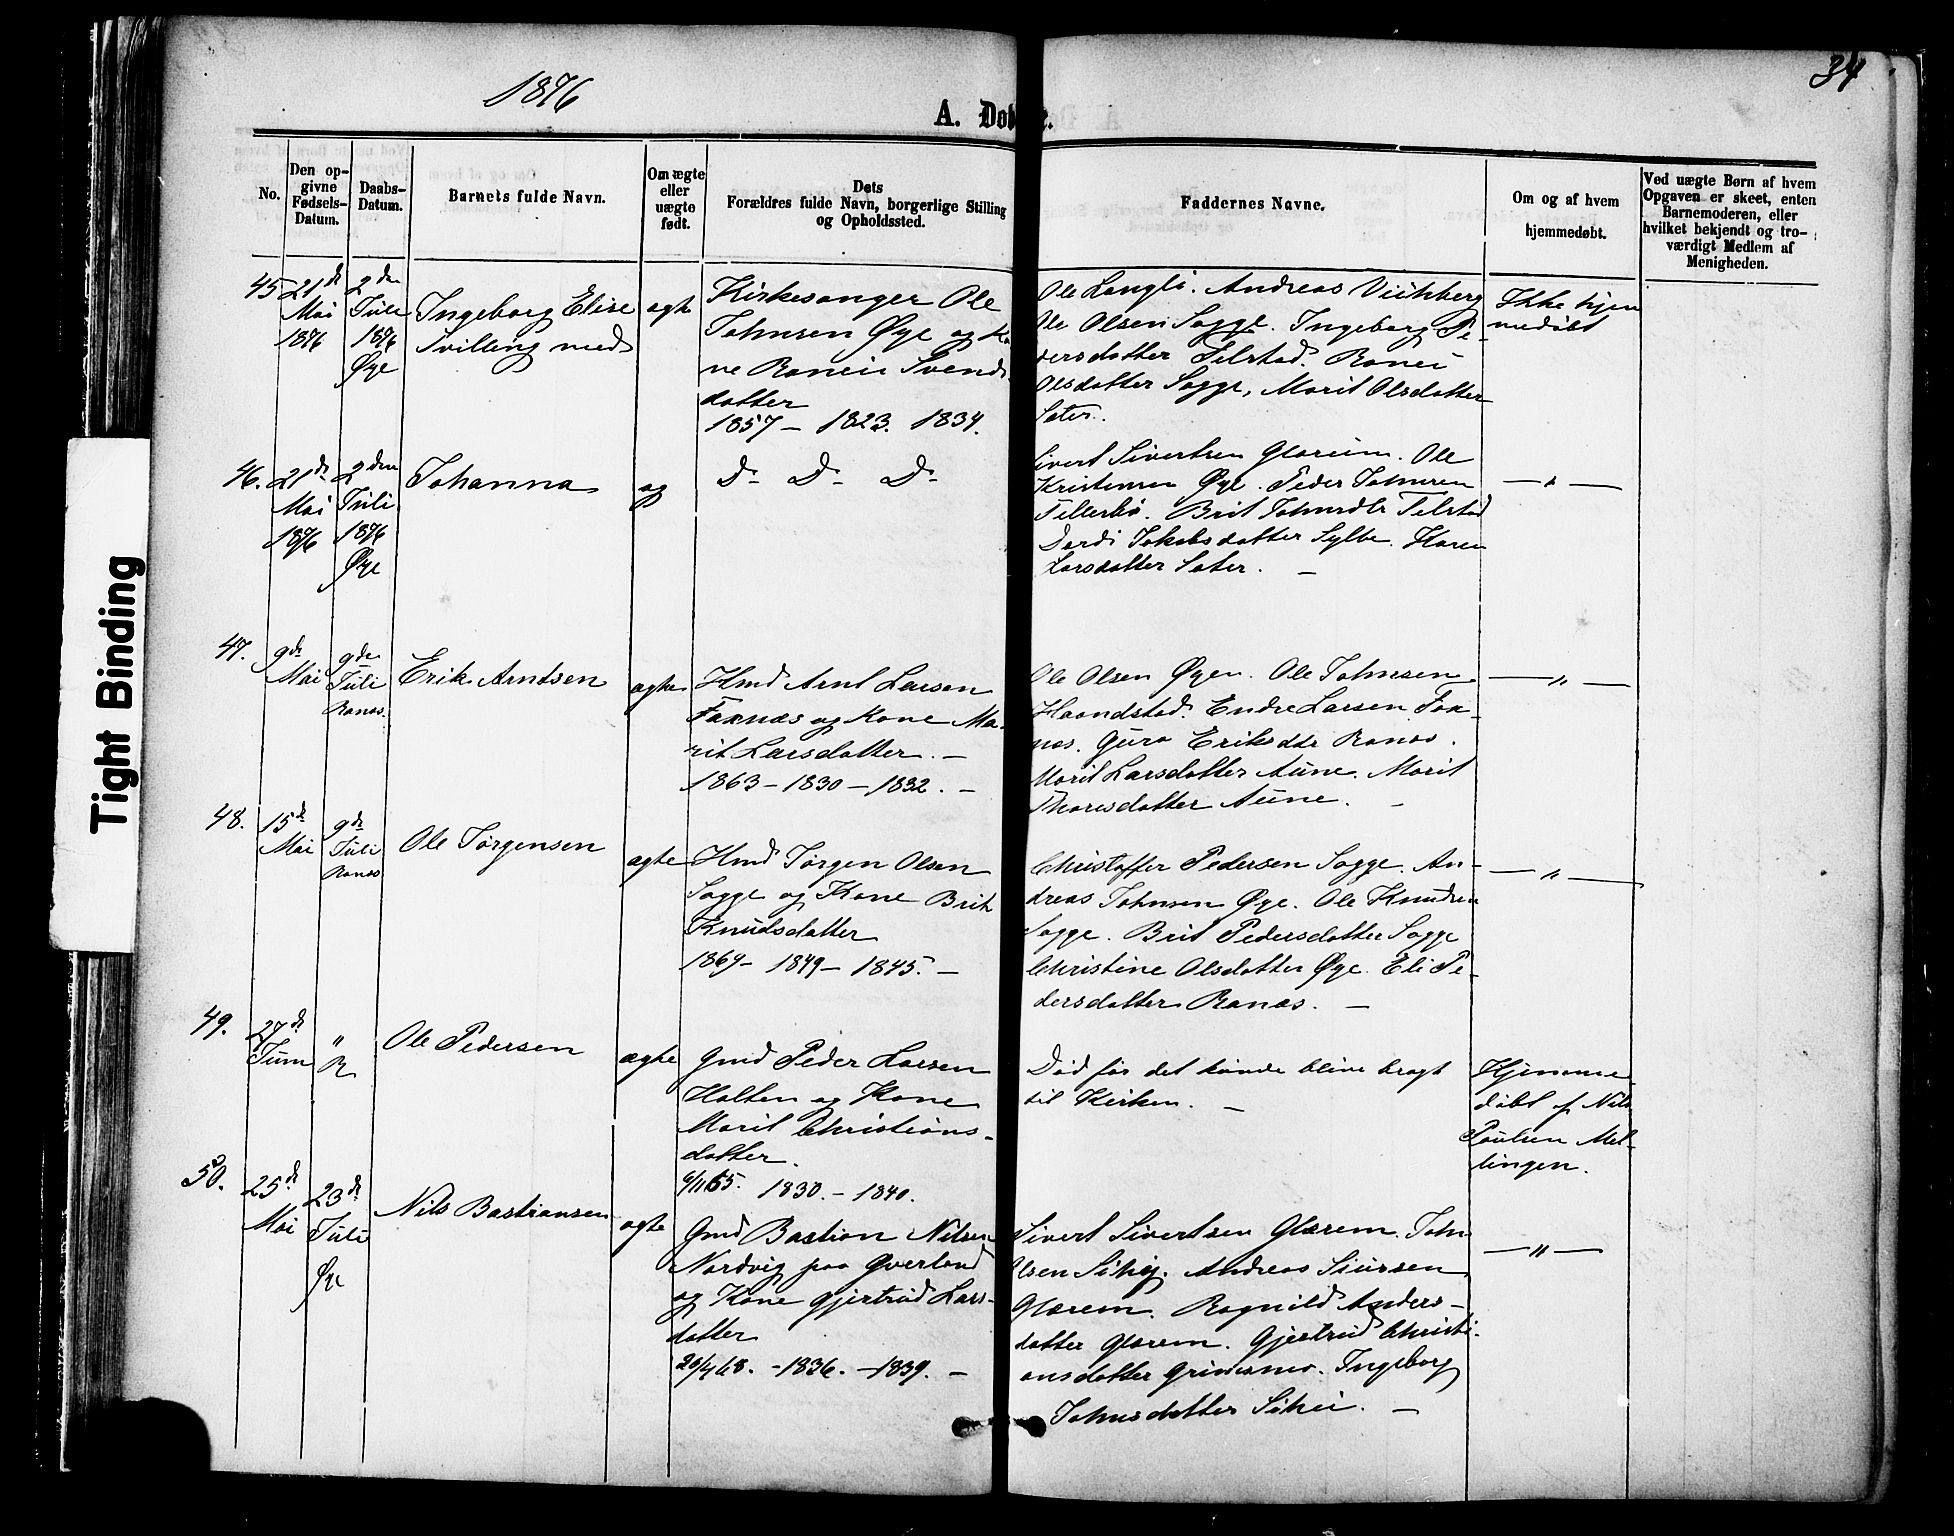 1876
34
A. Døbte.
No.
Den op-
givne
Fødsels-
Datum.
Daabs-
Datum.
Barnets fulde Navn.
Om ægte
eller
uægte
født.
Dets
Forældres fulde Navn, borgerlige Stilling
og Opholdssted.
Faddernes Navne.
Om og af hvem
hjemmedøbt.
Ved uægte Børn af hvem
Opgaven er skeet, enten
Barnemoderen, eller
hvilket bekjendt og tro-
værdigt Medlem af
Menigheden.
45
21de
Mai
1876
2den
Juli
1876
Øye
Ingeborg Elise
Tvilling med
ægte
Kirkesanger Ole
Johnsen Øye og Ko
ne Ranei Svends
datter
1857 – 1823. 1834.
Ole Langli. Andreas
Ole Olsen Sogge. Ingeborg Pe-
dersdatter Telstad. Ranei
Olsdatter Sogge, Marit Olsdatter
Sæter.
Ikke hjem
medøbt
46.
21de
Mai
1876
2den
Juli
1876
Øye
Johanna
æg
Do Do Do
Sivert Sivertsen Glærum. Ole
Kristensen Øye. Peder Johnsen
Tellesbø. Brit Johnsdtr Telstad
Dordi Jakobsdatter Sylte. Karen
Larsdatter Sæter. –
— " —
47.
9de
Mai
9de
Juli
Ranæs.
Erik Arntsen
ægte
Hmd Arnt Larsen
Foxnæs og Kone Ma-
rit Larsdatter. –
1863 – 1830 – 1832. –
Ole Olsen Øyen. Ole Johnsen
Haandstad. Endre Larsen Fox-
næs. Guro Eriksdtr Ranæs.
Marit Larsdatter Aune. Marit
Thoresdatter Aune. –
— " —
48.
15de
Mai
9de
Juli
Ranæs
Ole Jørgensen
ægte
Hmd Jørgen Olsen
Sogge og Kone Brit
Knudsdatter
1869 – 1849 – 1845. –
Christoffer Pedersen Sogge. An-
dreas Johnsen Øye. Ole Knudsen
Sogge. Brit Pedersdatter Sogge
Christine Olsdatter Øye. Eli Pe-
dersdatter Ranæs. –
— " —
49.
27de
Juni
"
R
Ole Pedersen
ægte
Gmd Peder Larsen
Halten og Kone
Marit Christians-
datter.
6/11 65. 1830. – 1840.
Død før det kunde blive bragt
til Kirken. –
Hjemme
døbt af Nils
Paulsen Mel-
lingen.
50.
25de
Mai
23de
Juli
Øye
Nils Bastiansen
ægte
Gmd Bastian Nilsen
Nordvig paa Qverland
og Kone Gjertrud Lars-
datter
20/4 68. – 1836. – 1839. –
Sivert Sivertsen Glærem. John
Olsen Settej. Andreas Siursen
Glærem. Ragnild Anders-
datter Glærem. Gjertrud Christi-
ansdatter Grimsmo. Ingeborg
Johnsdatter –
— " —
Tight Binding